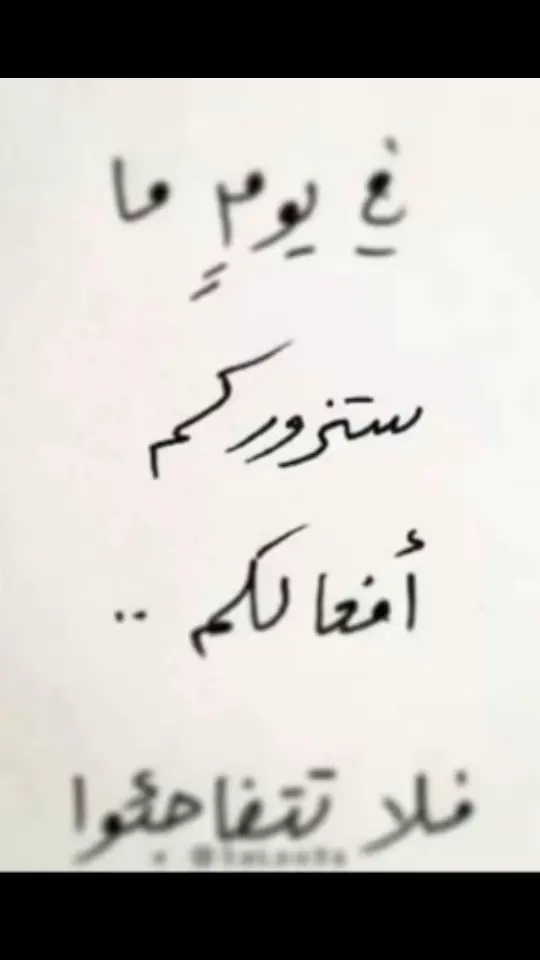 في يومٍ ما
ستزوركم
أفعالكم ..
فلا تتفاجئوا